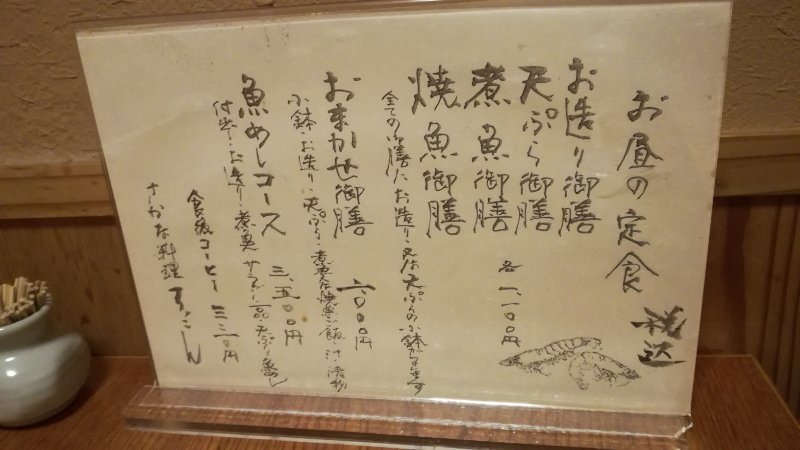 お昼の定食
税込
お造り御膳
天ぷら御膳
煮魚御膳
焼魚御膳
各一、一〇〇円
全ての御膳にお造り・又は天ぷらの小鉢が
おまかせ御膳
小鉢・お造り・天ぷら・煮魚・焼魚・御飯・汁・漬物
魚めしコース 三、五〇〇円
お造り・煮魚 サラダ 一品 天ぷら 魚めし
食後コーヒー 三三〇円
さかな料理